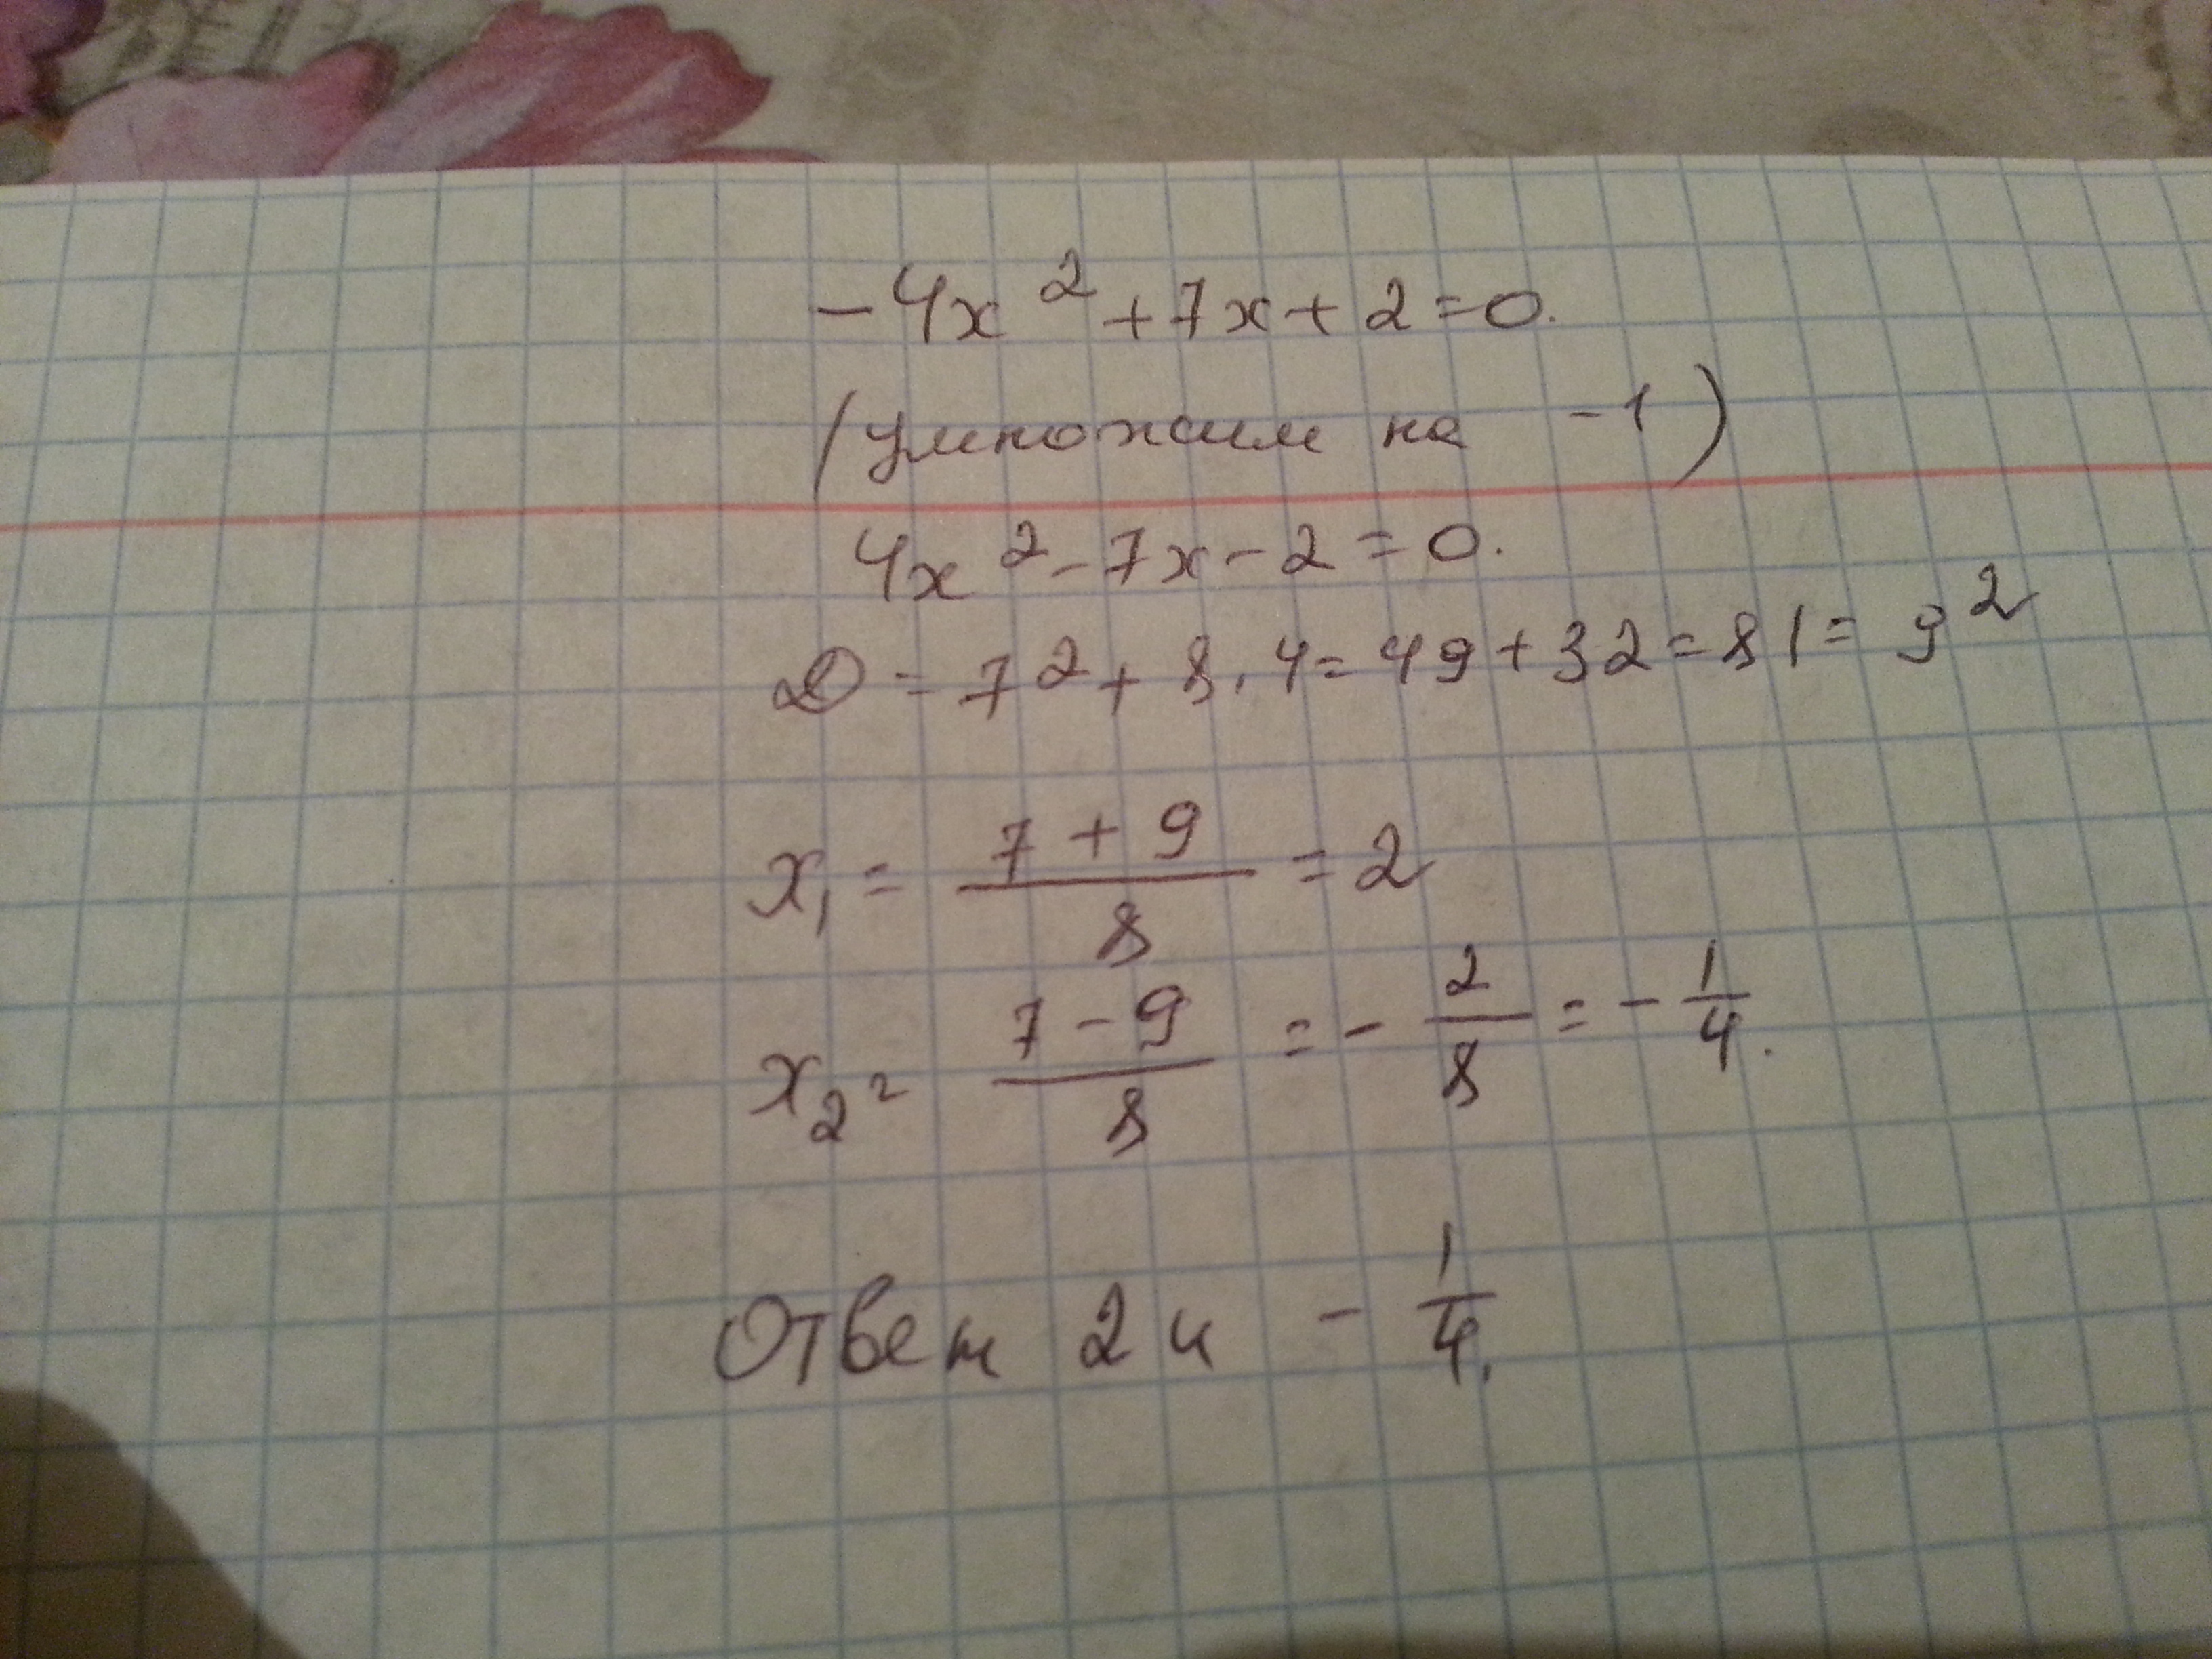 -4x² + 7x + 2 = 0.
(умножим на -1)
4x² - 7x - 2 = 0.
D = 7² + 8 · 4 = 49 + 32 = 81 = 9²
x₁ = (7 + 9)/8 = 2
x₂ = (7 - 9)/8 = - 2/8 = - 1/4.
Ответ 2 и - 1/4.